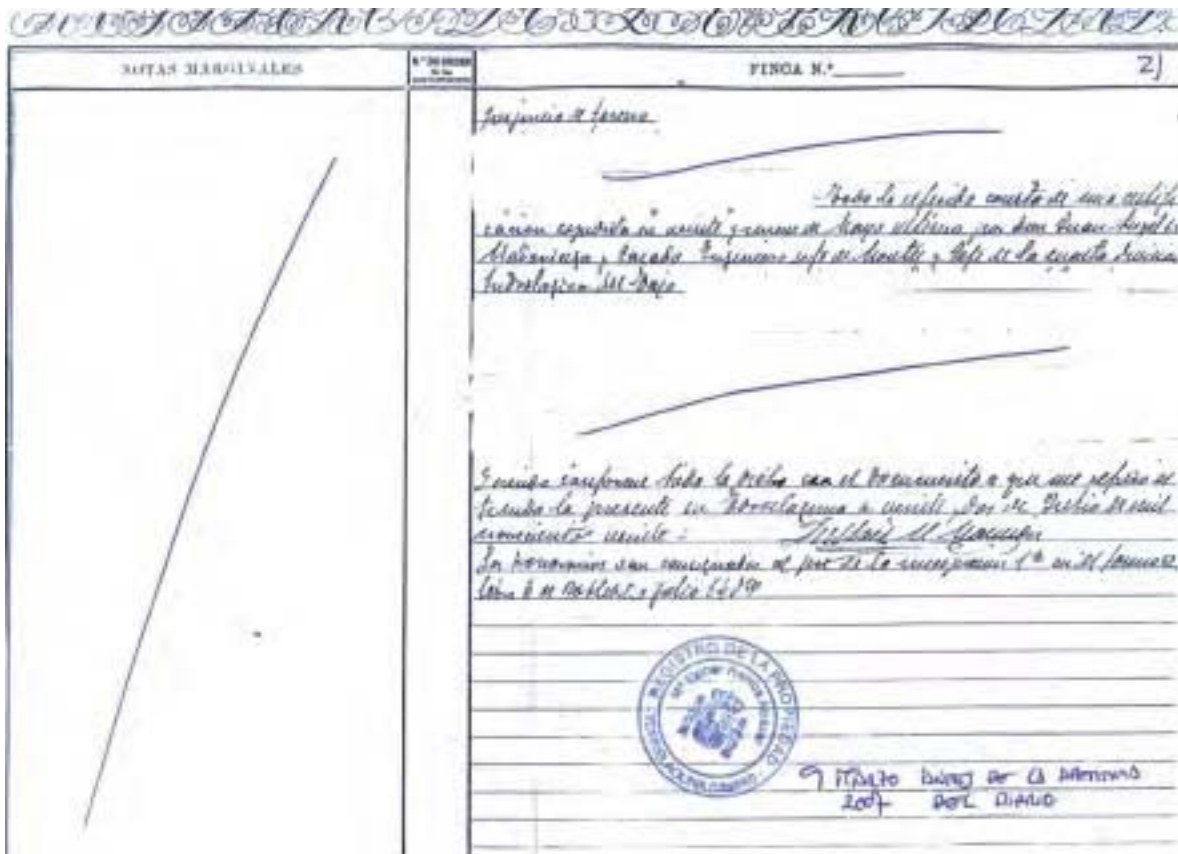 NOTAS MARGINALES
N.º DE ORDEN
FINCA N.º
2)
perjuicio de tercero
Todo lo referido consta de una certifi
cación expedida en veinte y nueve de Mayo último por don Juan Angel
Madariaga y Casado Ingeniero Jefe de Montes y Jefe de la cuarta División
hidrológica del Tajo
Y siendo conforme todo lo dicho con el documento a que me refiero ex
tiendo la presente en Torrelaguna a veinte dos de Julio de mil
novecientos veinte:
Los honorarios van consignados al pie de la inscripción 1ª en el tomo
REGISTRO DE LA PROPIEDAD
9 MARZO ANTES DE LA APERTURA
2007 DEL DIARIO